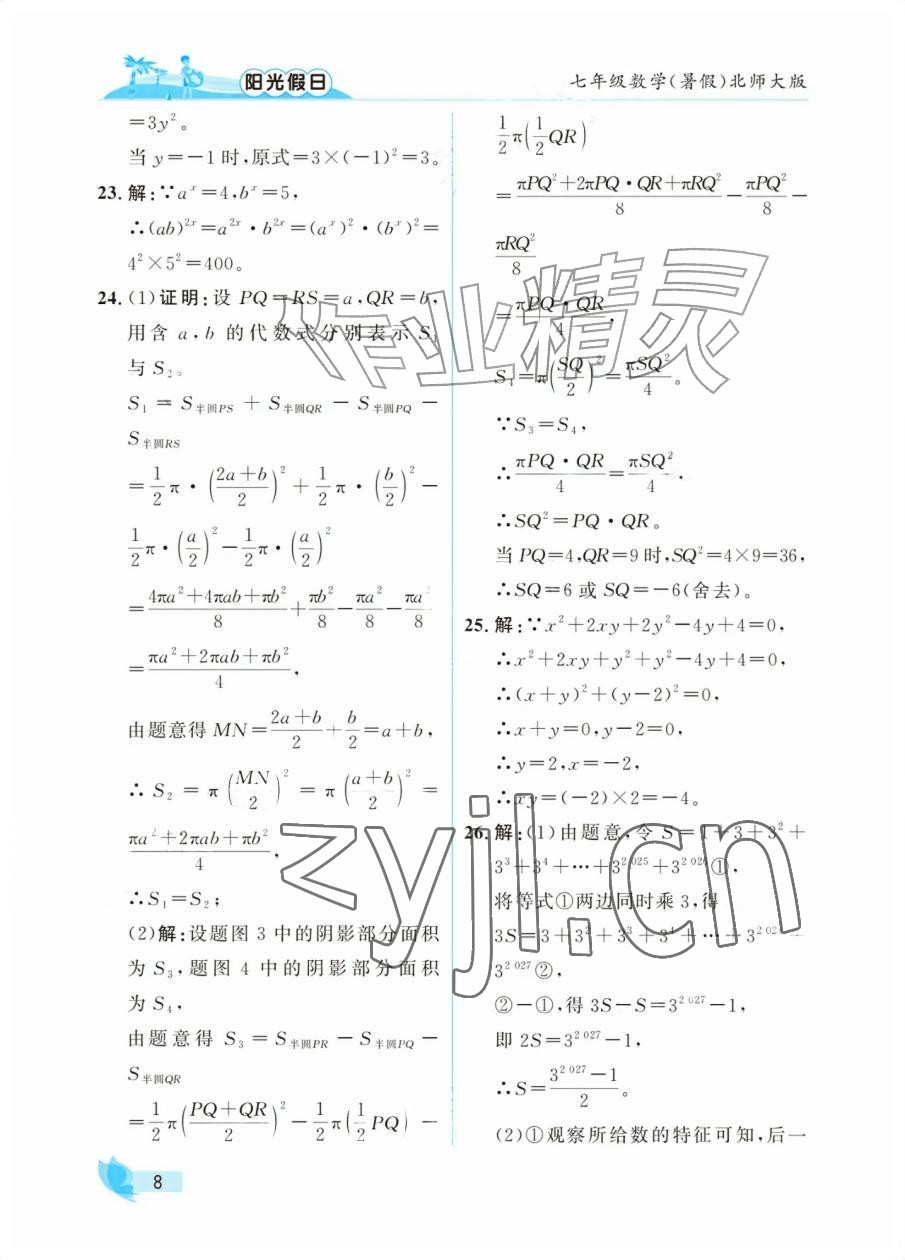 阳光假日
七年级数学(暑假)北师大版
=3y²。
当 y=-1 时,原式=3×(-1)²=3。
23. 解:∵aˣ=4,bˣ=5,
∴(ab)²ˣ=a²ˣ·b²ˣ=(aˣ)²·(bˣ)²=
4²×5²=400。
24. (1)证明:设 PQ=RS=a,QR=b,
用含 a,b 的代数式分别表示 S₁
与 S₂。
S₁ = S半圆PS + S半圆QR - S半圆PQ -
S半圆RS
=1/2π·((2a+b)/2)²+1/2π·(b/2)²-
1/2π·(a/2)²-1/2π·(a/2)²
=(4πa²+4πab+πb²)/8+πb²/8-πa²/8-πa²/8
=(πa²+2πab+πb²)/4,
由题意得 MN=(2a+b)/2+b/2=a+b,
∴ S₂ = π(MN/2)² = π((a+b)/2)² =
(πa²+2πab+πb²)/4,
∴S₁=S₂;
(2)解:设题图 3 中的阴影部分面积
为 S₃,题图 4 中的阴影部分面积
为 S₄,
由题意得 S₃ = S半圆PR - S半圆PQ -
S半圆QR
=1/2π((PQ+QR)/2)²-1/2π(1/2PQ)-
1/2π(1/2QR)²
=(πPQ²+2πPQ·QR+πRQ²)/8-πPQ²/8-
πRQ²/8
=πPQ·QR/4,
S₄=π(SQ/2)²=πSQ²/4。
∵S₃=S₄,
∴πPQ·QR/4=πSQ²/4,
∴SQ²=PQ·QR。
当 PQ=4,QR=9 时,SQ²=4×9=36,
∴SQ=6 或 SQ=-6(舍去)。
25. 解:∵x²+2xy+2y²-4y+4=0,
∴x²+2xy+y²+y²-4y+4=0,
∴(x+y)²+(y-2)²=0,
∴x+y=0,y-2=0,
∴y=2,x=-2,
∴xy=(-2)×2=-4。
26. 解:(1)由题意,令 S=1+3+3²+
3³+3⁴+…+3²⁰²⁵+3²⁰²⁶①,
将等式①两边同时乘 3,得
3S=3+3²+3³+3⁴+…+3²⁰²⁶+
3²⁰²⁷②,
②-①,得 3S-S=3²⁰²⁷-1,
即 2S=3²⁰²⁷-1,
∴S=(3²⁰²⁷-1)/2。
(2)①观察所给数的特征可知,后一
8
作业精灵
zyjl.cn